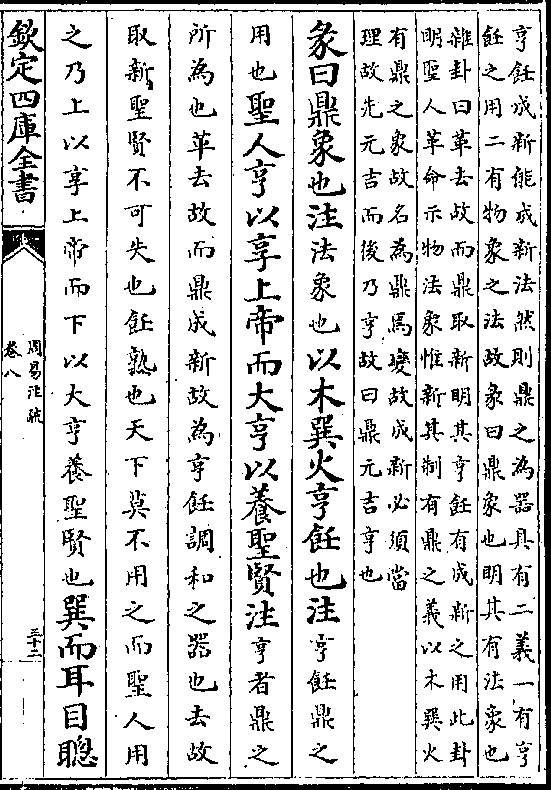 亨飪成新能成新法然則鼎之為器具有二義一有亨
飪之用二有物象之法故彖曰鼎象也明其有法象也
雜卦曰革去故而鼎取新明其亨飪有成新之用此卦
明聖人革命示物法象惟新其制有鼎之義以木巽火
有鼎之象故名為鼎焉變故成新必須當
理故先元吉而後乃亨故曰鼎元吉亨也
彖曰鼎象也注法象也以木巽火亨飪也注亨飪鼎之
用也聖人亨以享上帝而大亨以養聖賢注亨者鼎之
所為也革去故而鼎成新故為亨飪調和之器也去故
取新聖賢不可失也飪熟也天下莫不用之而聖人用
之乃上以享上帝而下以大亨養聖賢也巽而耳目聰
欽定四庫全書
周易注疏
卷八
三十二